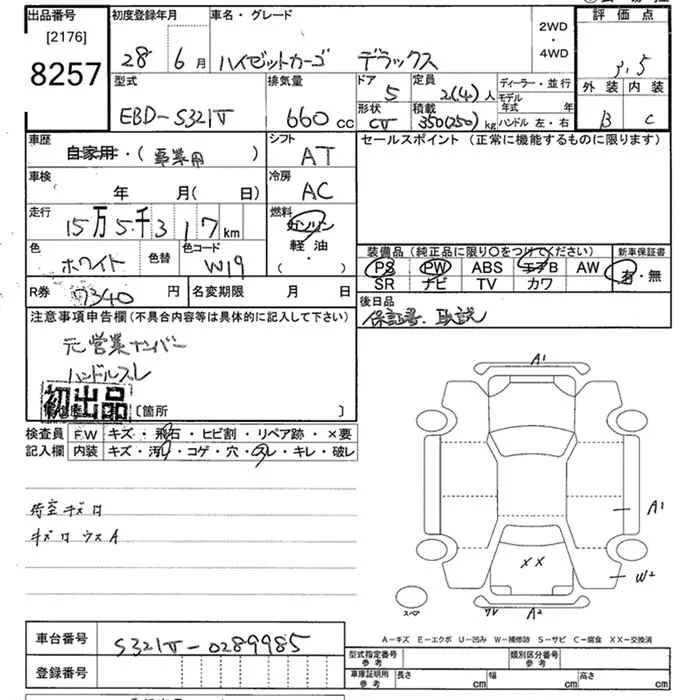 出品番号
[2176]
8257
初度登録年月
28年 6月
車名・グレード
ハイゼットカーゴ デラックス
2WD
・
4WD
評価点
3.5
外装 内装
B C
型式
EBD-S321V
排気量
660 cc
ドア
5
定員
2(4)人
ディーラー・並行
モデル年式 年
形状
CV
積載
350(250)kg
ハンドル 左・右
車歴
自家用・(事業用)
シフト
AT
セールスポイント (正常に機能するものに限ります)
車検
年 月(日)
冷房
AC
走行
15万5千317km
燃料
ガソリン
軽油
( )
色
ホワイト
色替
色コード
W19
装備品(純正品に限り○をつけてください)
新車保証書
PS PW ABS エアB AW
SR ナビ TV カワ
有・無
R券
7340円
名変期限 月 日
後日品
保証書、取説
注意事項申告欄(不具合内容等は具体的に記入して下さい)
元営業ナンバー
ハンドルスレ
初出品
[箇所 ]
検査員
記入欄
FW キズ・飛石・ヒビ割・リペア跡・×要
内装 キズ・汚れ・コゲ・穴・スレ・キレ・破レ
荷室キズ凹
キズ凹ウスA
A1
A1
XX
W2
スペア
A2
A-キズ E-エクボ U-凹み W-補修跡 S-サビ C-腐食 XX-交換済
車台番号
S321V-0289985
登録番号
型式指定番号
参考
類別区分番号
参考
車庫証明用
参考
長さ cm
幅 cm
高さ cm